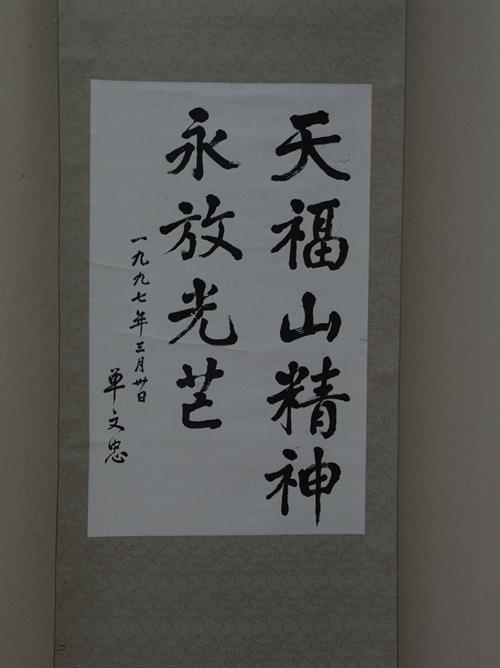 天福山精神
永放光芒
一九九七年三月卅日
单文忠